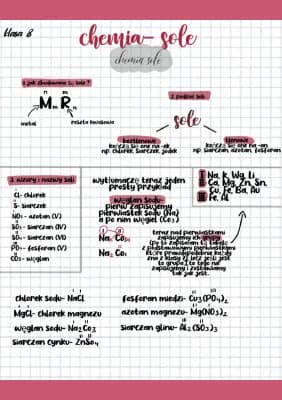 klasa 8
chemia- sole
chemia sole
1. jak zbudowane są sole?
n m
Mm Rn
metal
reszta kwasowa
2. podział soli
sole
beztlenowe
kończą się one na -ek
np. chlorek, siarczek, jodek
tlenowe
kończą się one na -an
np. siarczan, azotan, fosforan
3. wzory i nazwy soli
Cl- chlorek
S- siarczek
NO₃ - azotan (V)
SO₃ - siarczan (IV)
SO₄ - siarczan (VI)
PO₄ - fosforan (V)
CO₃ - węglan
wytłumaczę teraz jeden
prosty przykład
węglan sodu-
pierw zapisujemy
pierwiastek sodu (Na)
a po nim węgiel (CO₃)
Na₂ CO₃
Na₂ CO₃
I Na, K, Wg, Li
II Ca, Mg, Zn, Sn,
Cu, Fe, Ba, Au
III Fe, Al
teraz nad pierwiastkami
zapisujemy ich grupy
chlorek sodu- NaCl
MgCl- chlorek magnezu
węglan sodu- Na₂CO₃
siarczan cynku- ZnSO₄
fosforan miedzi- Cu₃(PO₄)₂
azotan magnezu- Mg(NO₃)₂
siarczan glinu- Al₂(SO₃)₃